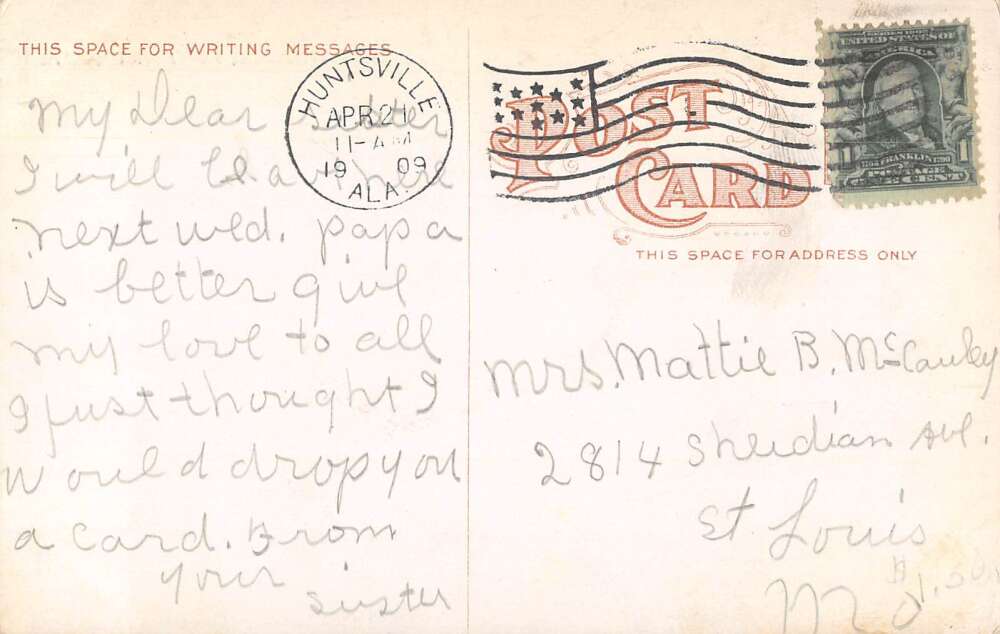 THIS SPACE FOR WRITING MESSAGES
My Dear Sister
I will leave here
next wed. papa
is better give
my love to all
I just thought I
would drop you
a card. From
your
sister
HUNTSVILLE
APR 21
11-AM
1909
ALA.
POST
CARD
THIS SPACE FOR ADDRESS ONLY
SERIES 1902
UNITED STATES OF
AMERICA
1706 FRANKLIN 1790
POSTAGE
Mrs. Mattie B. McCauley
2814 Sheridian Ave.
St. Louis
Mo